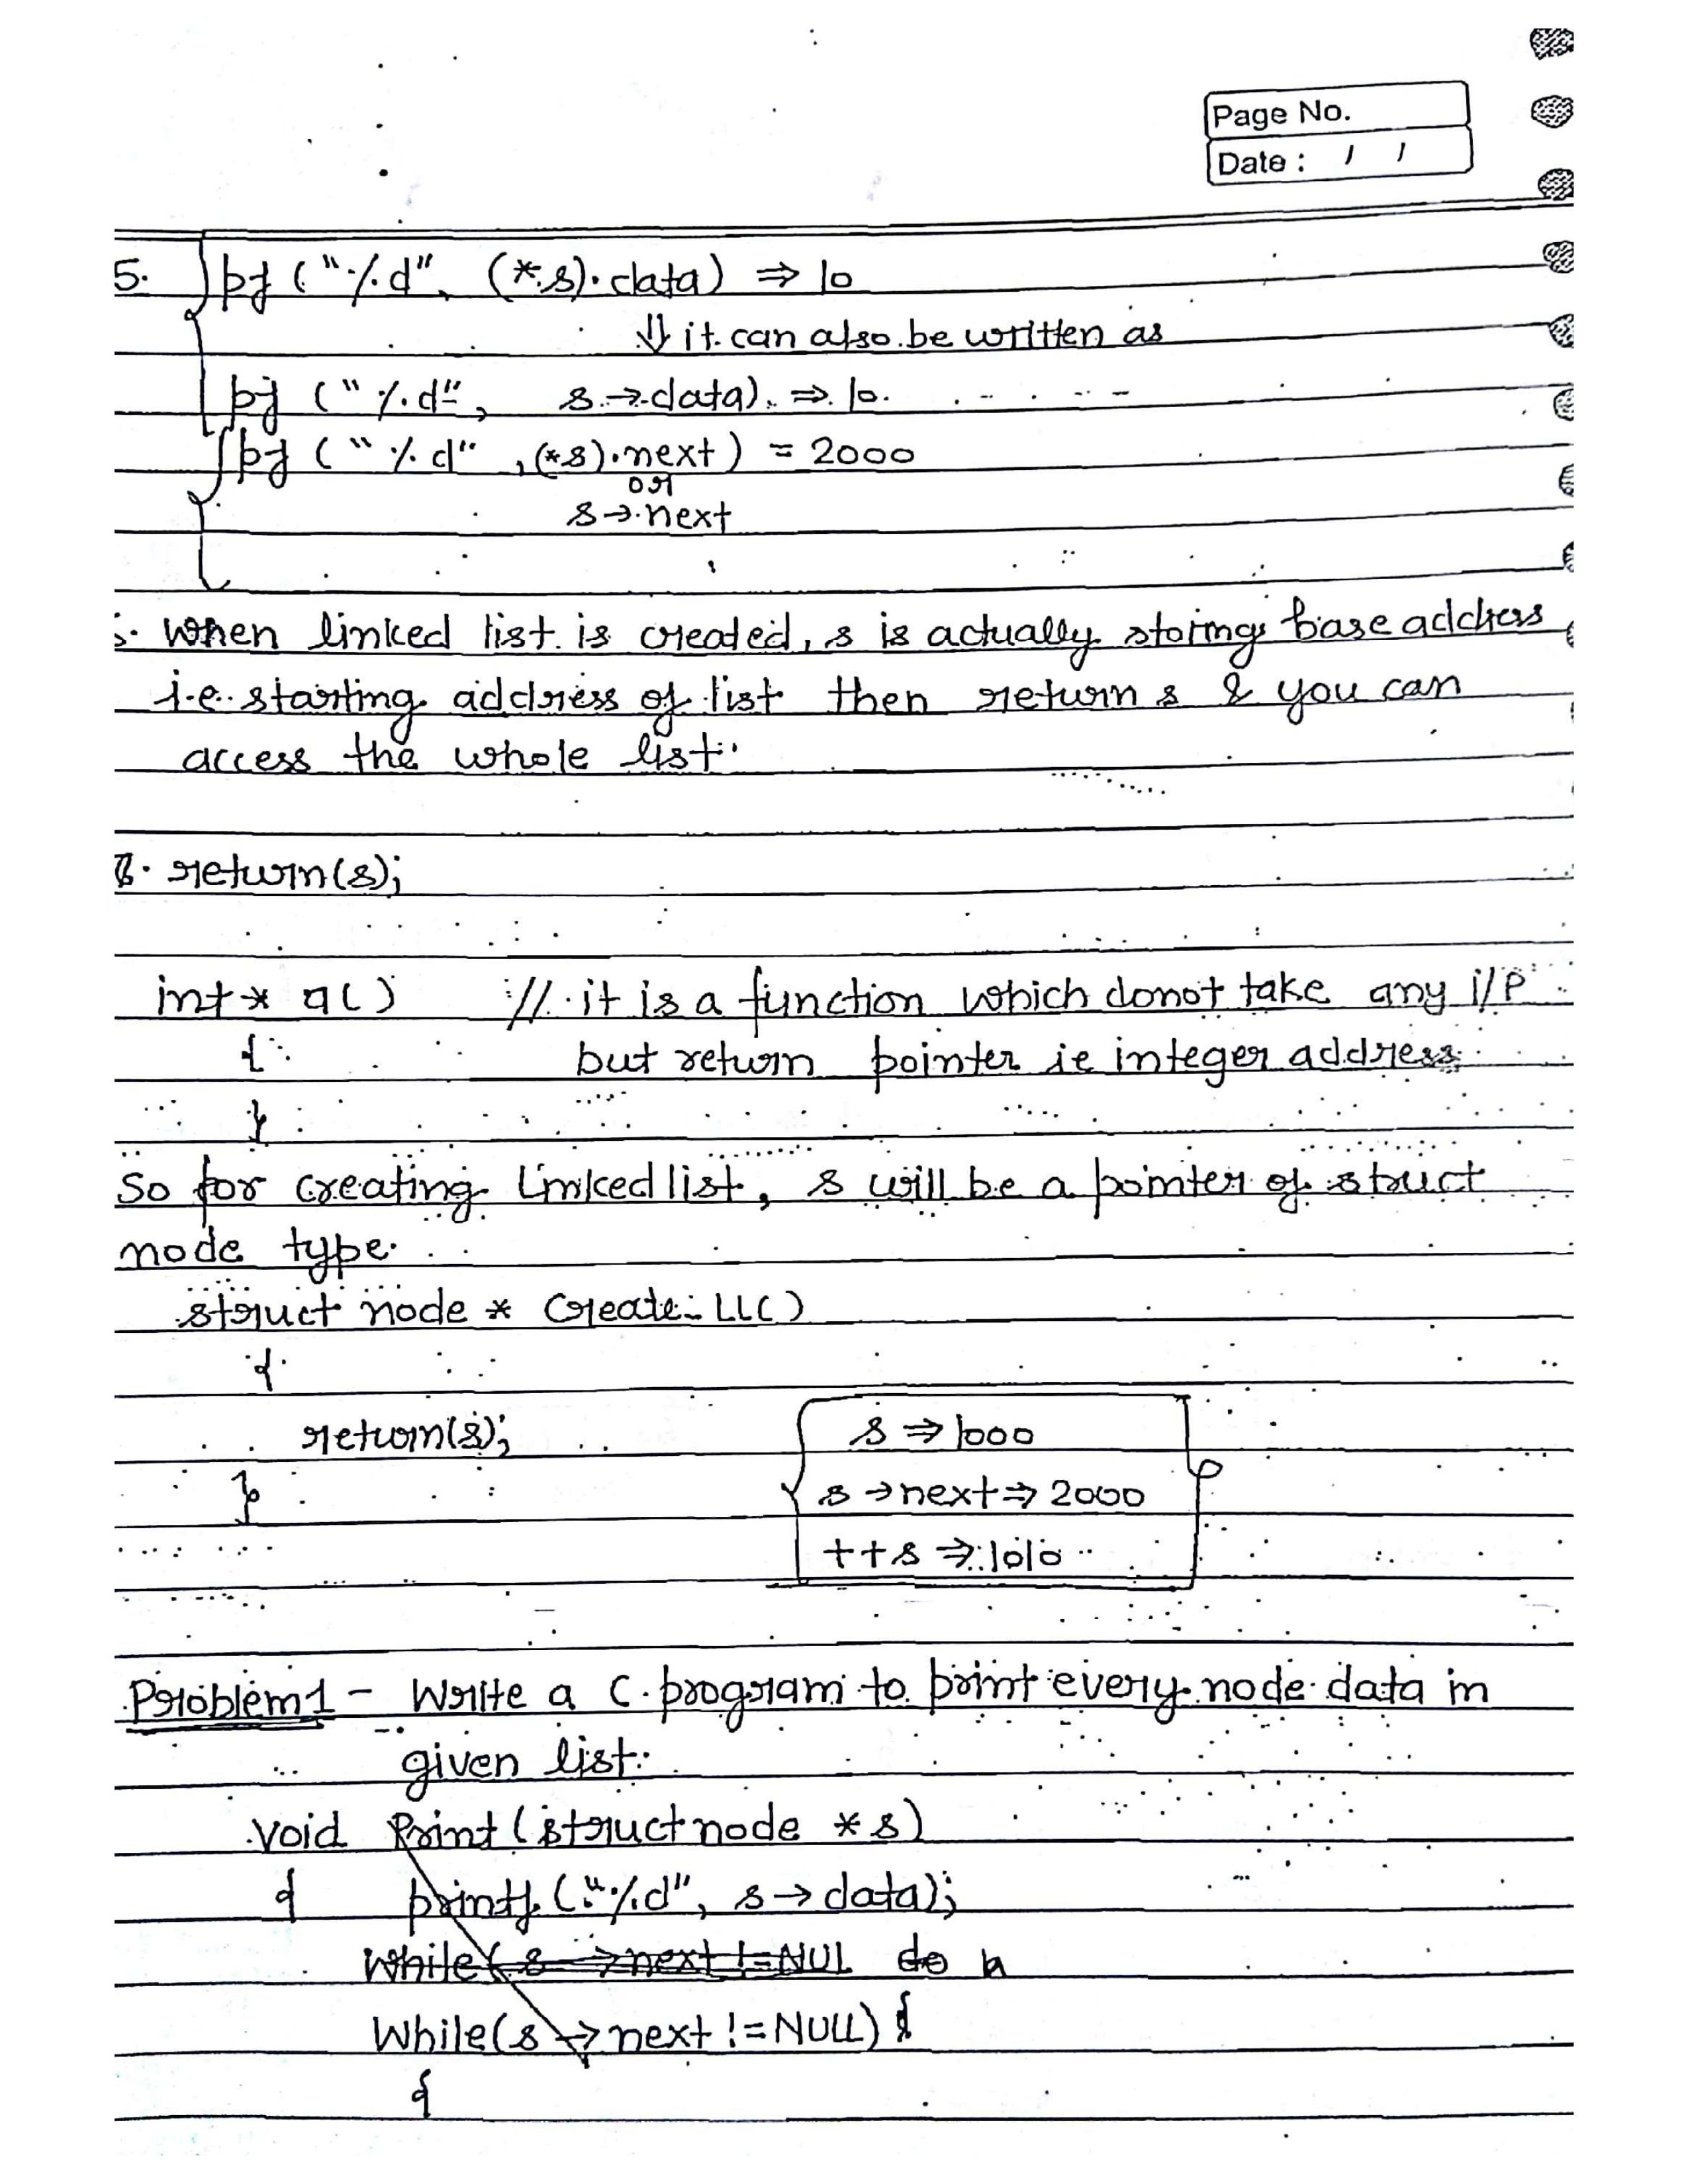 Page No.
Date : / /
5. pf ("%d", (*s).data) ⇒ 10
⇓ it can also be written as
pf ("%d", s→data) ⇒ 10.
pf ("%d", (*s).next) = 2000
or
s→next
When linked list is created, s is actually storing base address
i.e. starting address of list then return s & you can
access the whole list.
return(s);
int* a() // it is a function which donot take any i/p
{ but return pointer ie integer address
}
So for creating linked list, s will be a pointer of struct
node type.
struct node * Create-LL()
{
return(s);
}
s ⇒ 1000
s→next ⇒ 2000
++s ⇒ 1010
Problem1 - Write a C program to print every node data in
given list.
void Print (struct node *s)
{ printf ("%d", s→data);
while( s →next != NUL do
While(s → next != NULL) {
{